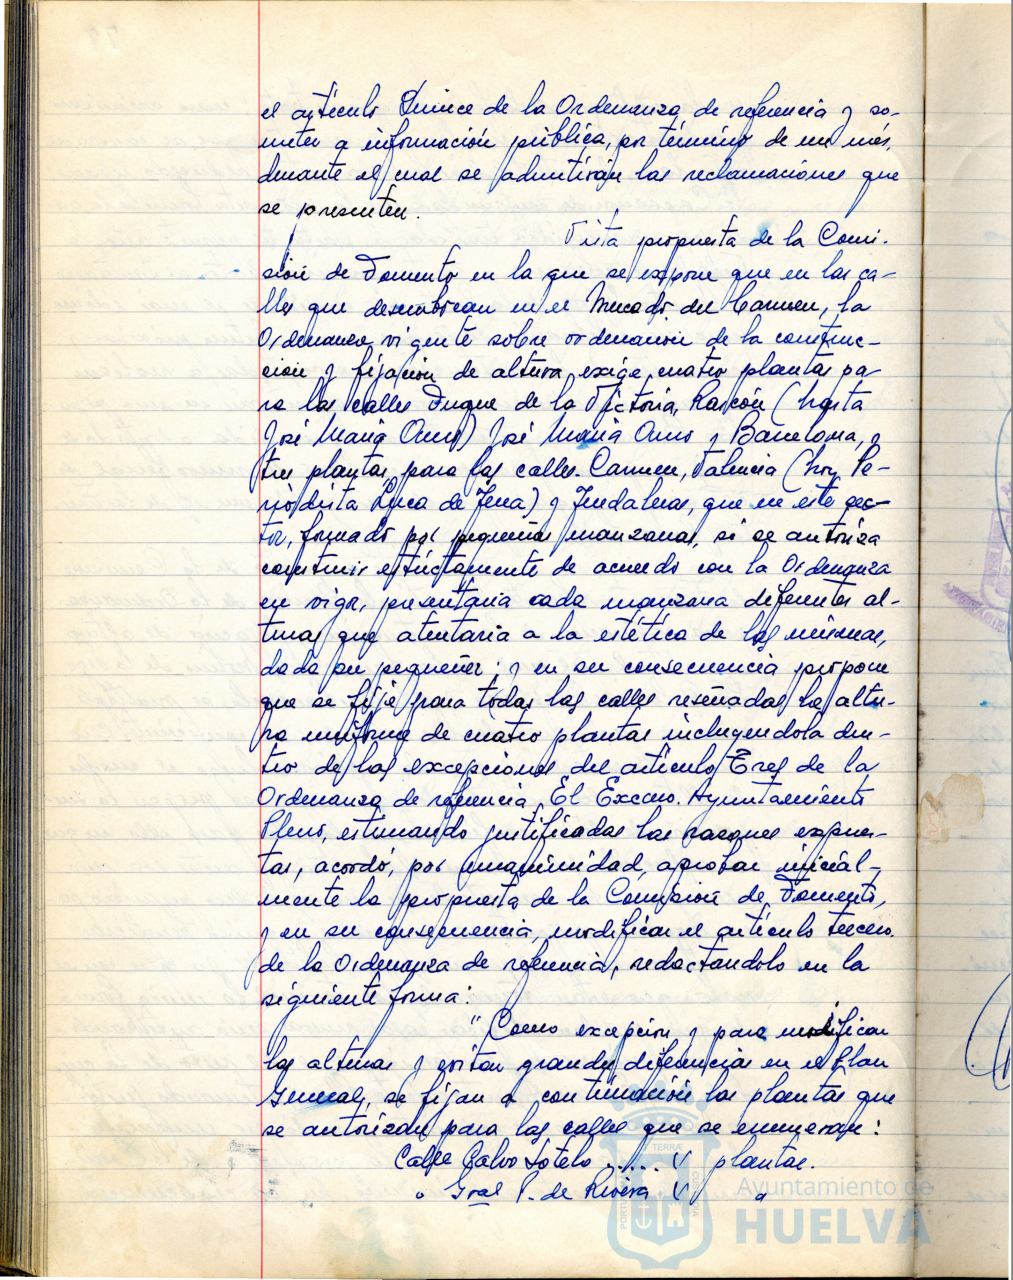 el artículo Quince de la Ordenanza de referencia y so-
meter a información pública, por término de un mes,
durante el cual se admitirán las reclamaciones que
se presenten.
Vista propuesta de la Comi-
sión de Fomento en la que se expone que en las ca-
lles que desembocan en el Mercado del Carmen, la
Ordenanza vigente sobre ordenación de la construc-
ción y fijación de altura exige cuatro plantas pa-
ra las calles Duque de la Victoria, Rascón (hasta
José María Amo) José María Amo y Barcelona, y
tres plantas para las calles Carmen, Valencia (hoy Pe-
riodista Luca de Tena) y Jendaleras, que en este sec-
tor, formado por pequeñas manzanas, si se autoriza
construir estrictamente de acuerdo con la Ordenanza
en vigor, presentaria cada manzana diferentes al-
turas que atentaria a la estética de las mismas,
dada su pequeñez; y en su consecuencia propone
que se fije para todas las calles reseñadas la altu-
ra uniforme de cuatro plantas incluyendola den-
tro de las excepciones del artículo Tres de la
Ordenanza de referencia. El Excmo. Ayuntamiento
Pleno, estimando justificadas las razones expues-
tas, acordó, por unanimidad, aprobar inicial-
mente la propuesta de la Comisión de Fomento,
y en su consecuencia, modificar el artículo tercero
de la Ordenanza de referencia, redactandolo en la
siguiente forma:
"Como excepción y para modificar
las alturas y evitar grandes diferencias en el Plan
General, se fijan a continuación las plantas que
se autorizan para las calles que se enumeran:
Calle Calvo Sotelo ...... V plantas.
" Gral P. de Rivera V "
Ayuntamiento de
HUELVA